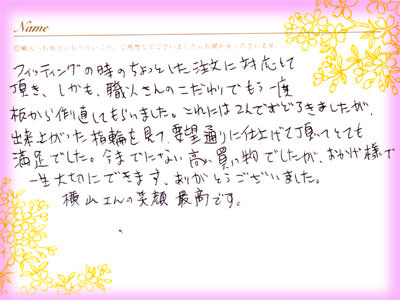 Name
◎職人へお伝えになりたいこと、ご感想などございましたらお聞かせくださいませ。
フィッティングの時のちょっとした注文に対応して
頂き、しかも、職人さんのこだわりでもう一度
板から作り直してもらいました。これには2人でおどろきましたが、
出来上がった指輪を見て、要望通りに仕上げて頂いてとても
満足でした。今までにない高い買い物でしたが、おかげ様で
一生大切にできます、ありがとうございました。
横山さんの笑顔最高です。